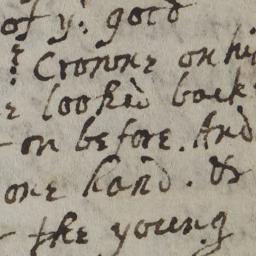 of yͤ. good
Cronne on hi
looked back
on before. And
one hand. &
the young